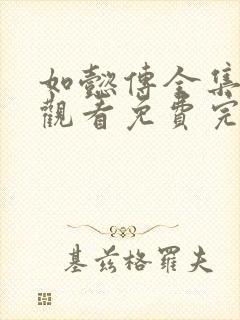 如懿傳全集
觀看免費完
基茲格羅夫